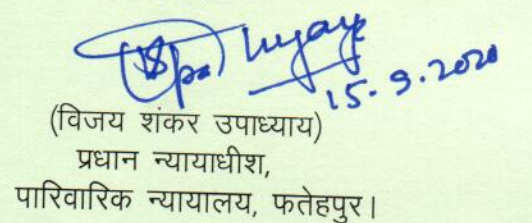 15.9.2020
(विजय शंकर उपाध्याय)
प्रधान न्यायाधीश,
पारिवारिक न्यायालय, फतेहपुर।